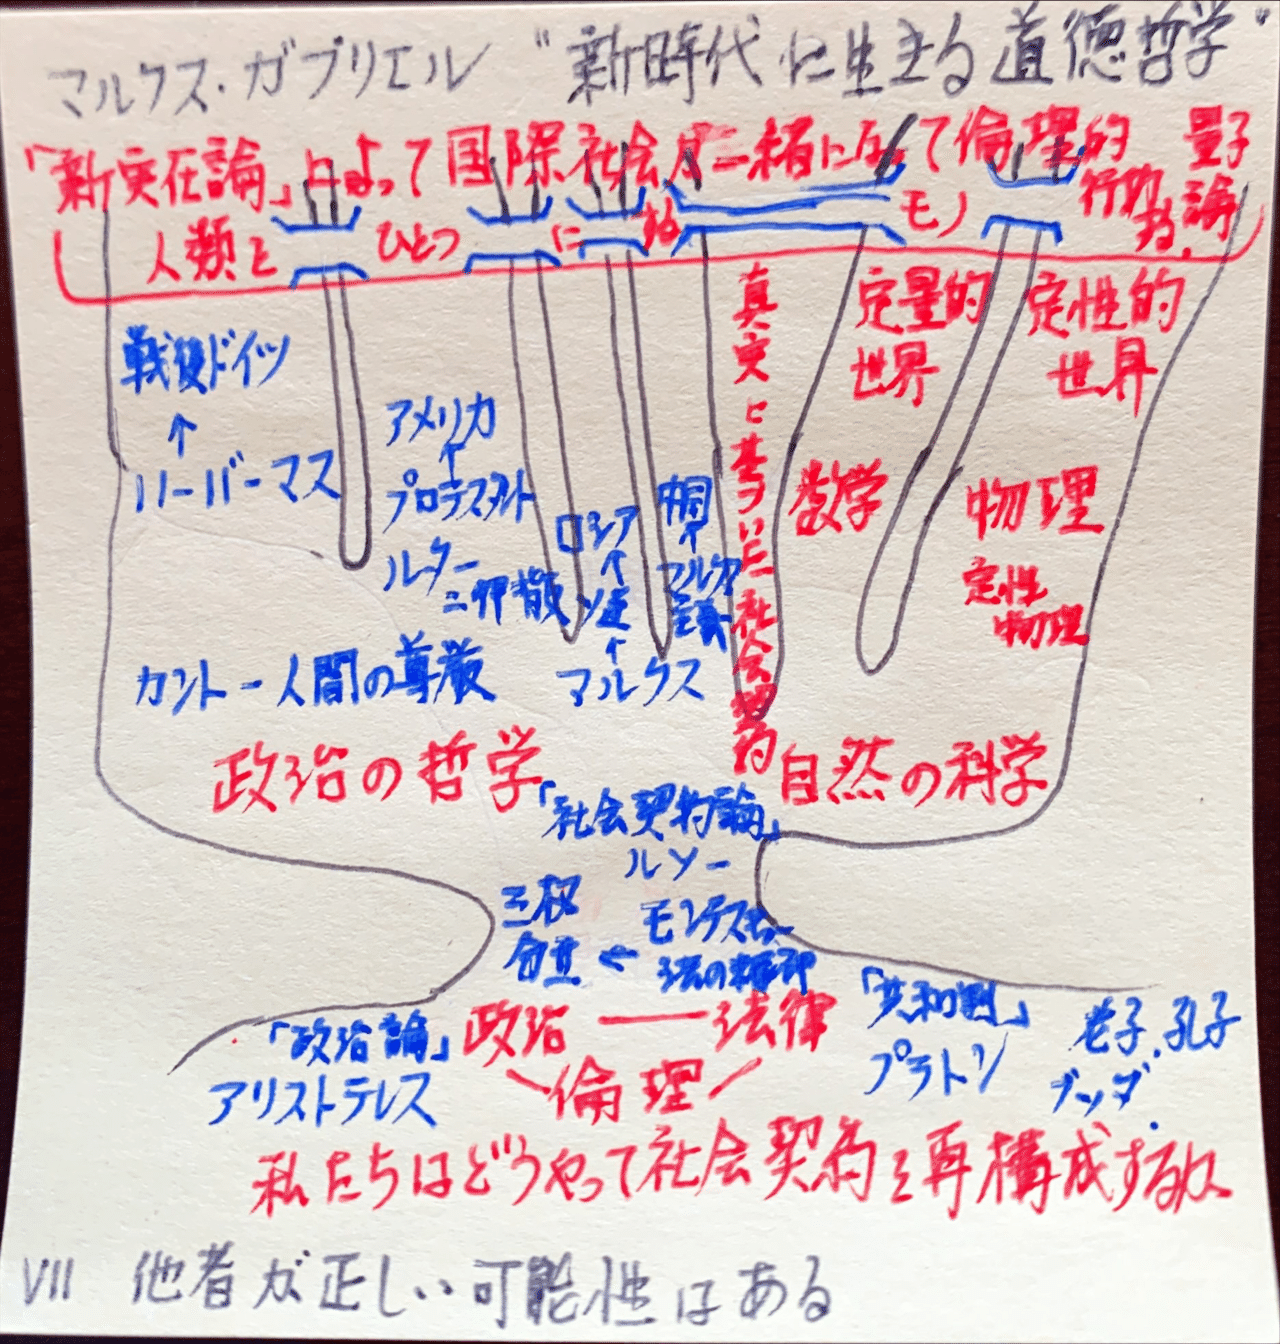 マルクス・ガブリエル “新時代に生きる道徳哲学”
「新実在論」によって国際社会が一緒になって倫理的
行動
量子
論
人類を ひとつ に
モノ
戦後ドイツ
↑
ハーバーマス
アメリカ
↑
プロテスタント
ルター
カントー人間の尊厳
ロシア
↑
ソ連
↑
マルクス
中国
↑
マルクス
主義
真実に基づいた社会契約
定量的
世界
数学
定性的
世界
物理
定性
物理
政治の哲学
自然の科学
「社会契約論」
ルソー
三权
分立
←
モンテスキュー
法の精神
「政治論」
アリストテレス
政治 ― 法律
倫理
「共和制」
プラトン
老子、孔子
ブッダ.
私たちはどうやって社会契約を再構成するか
VII 他者が正しい可能性はある